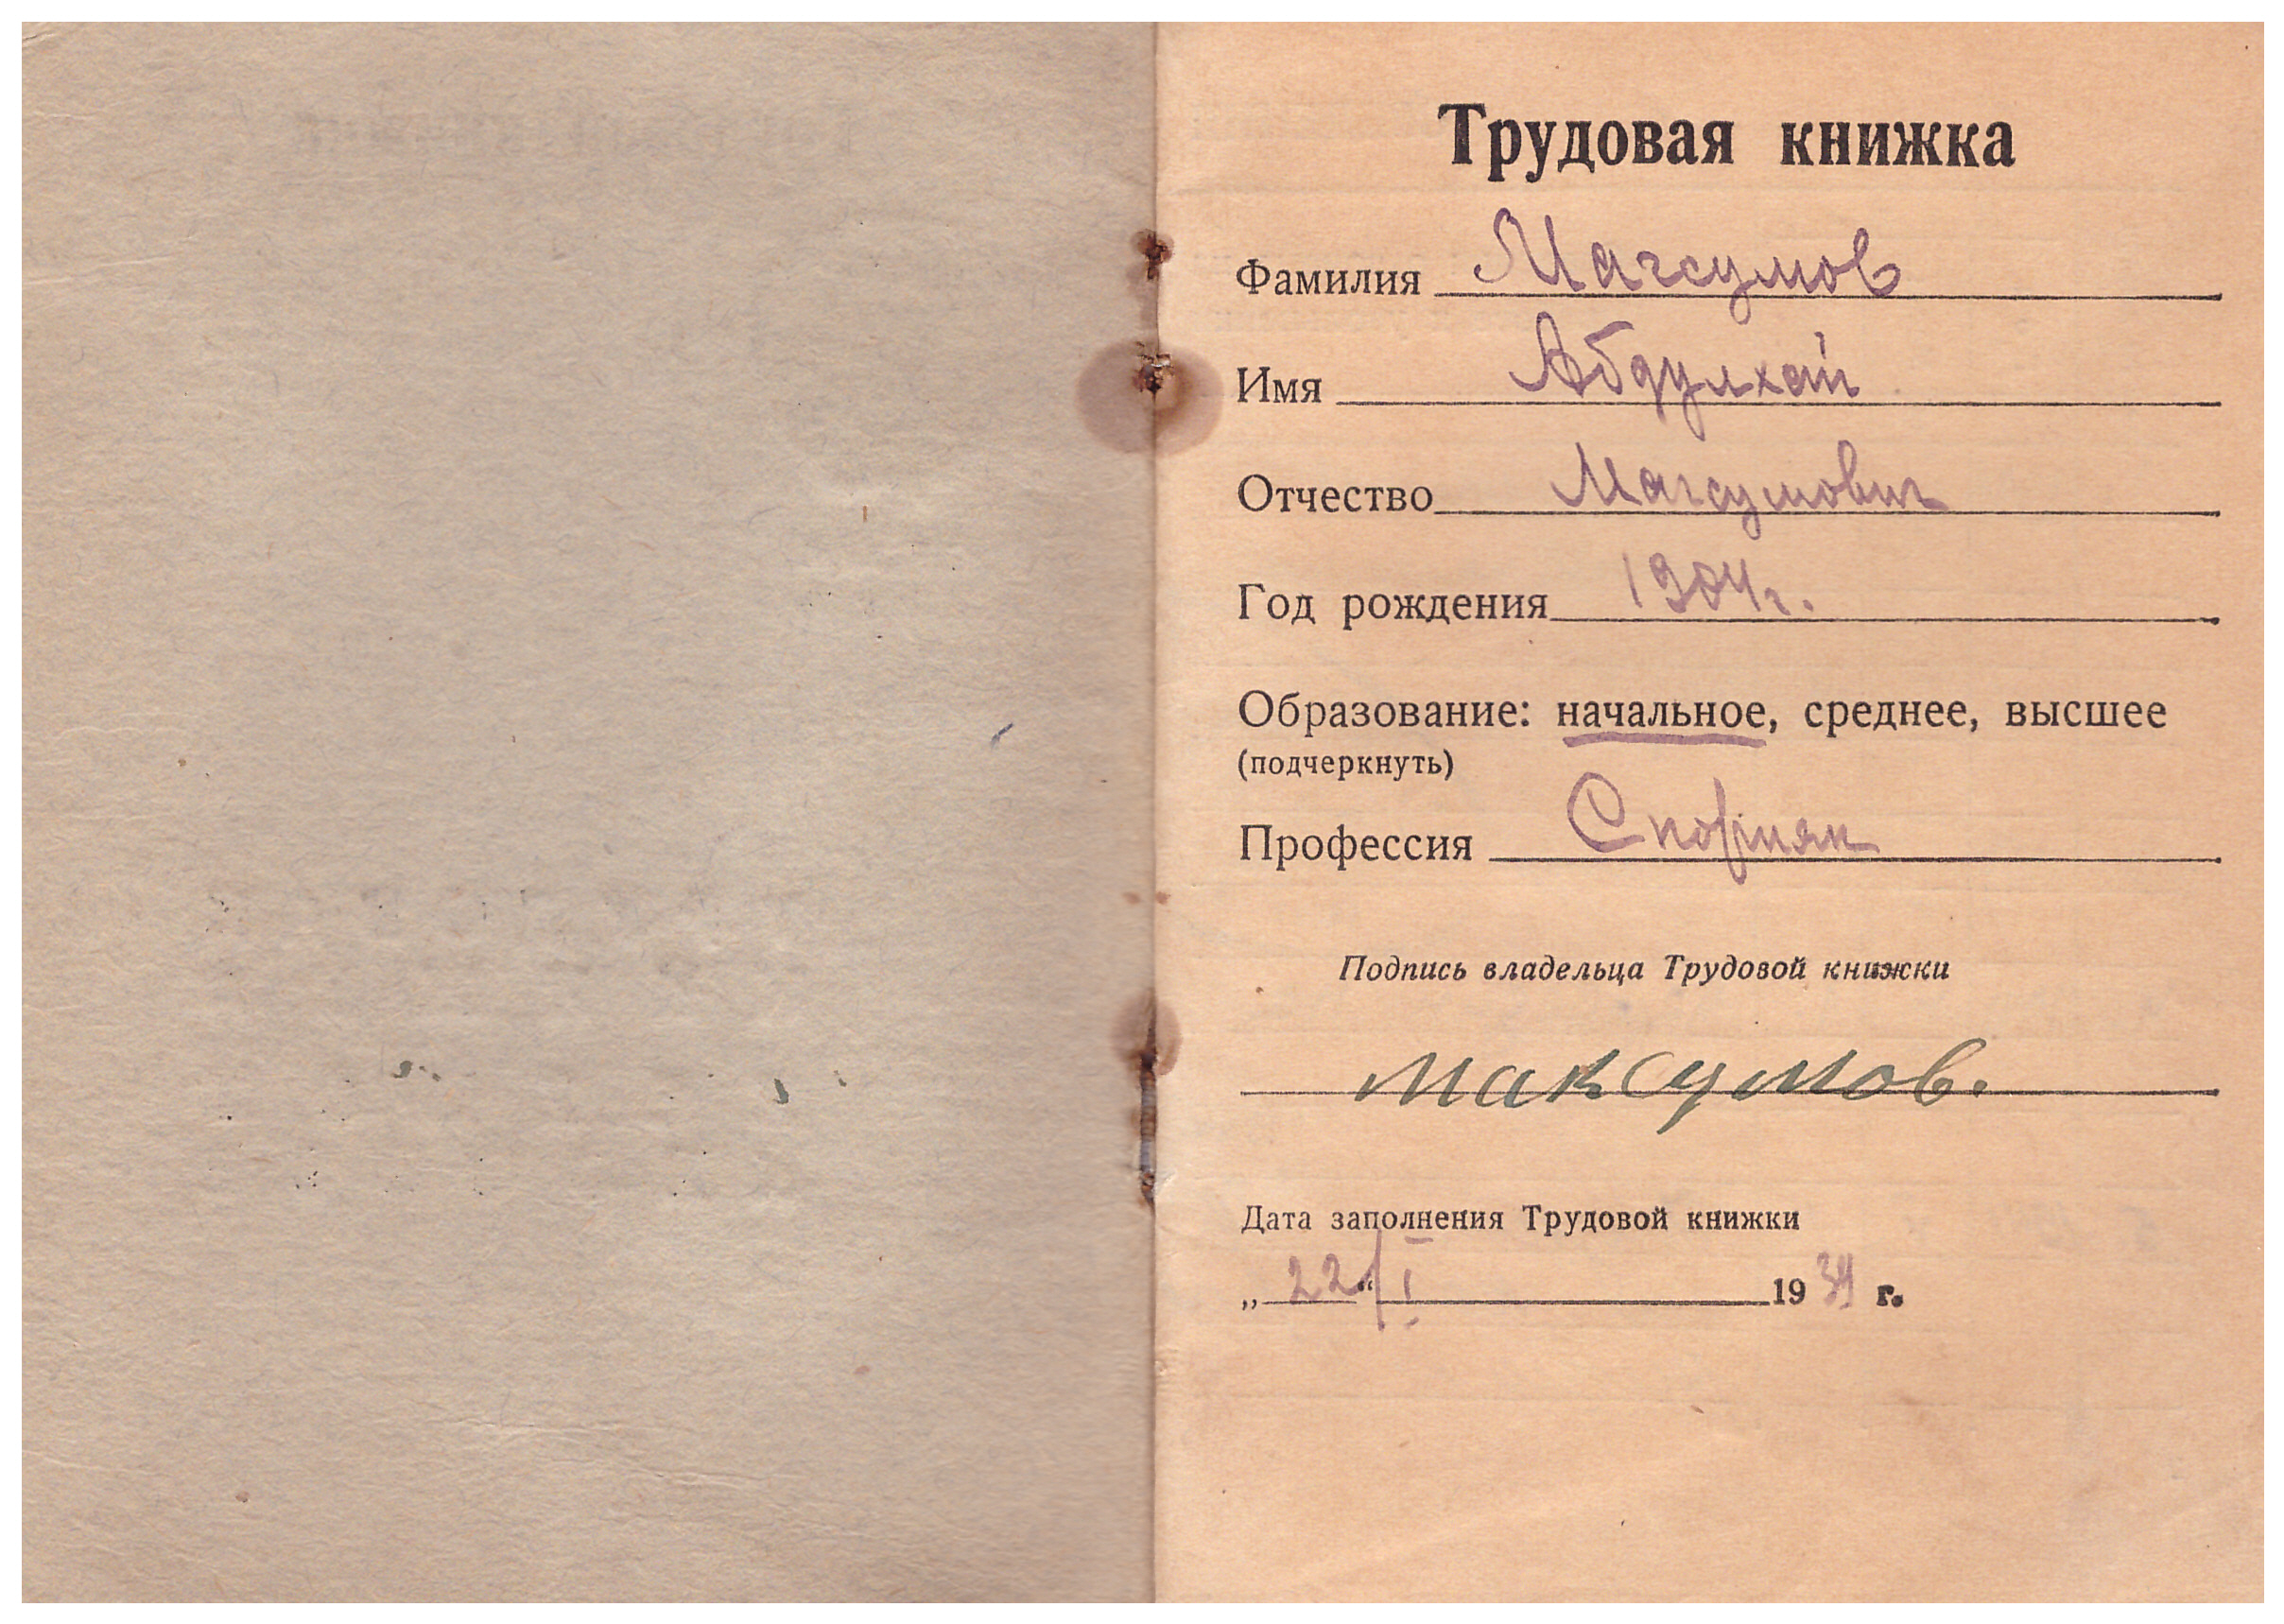 Трудовая книжка
Фамилия Магсумов
Имя Абдулхай
Отчество Магсумович
Год рождения 1904г.
Образование: начальное, среднее, высшее
(подчеркнуть)
Профессия
Подпись владельца Трудовой книжки
Максумов.
Дата заполнения Трудовой книжки
„22“/I 1939 г.